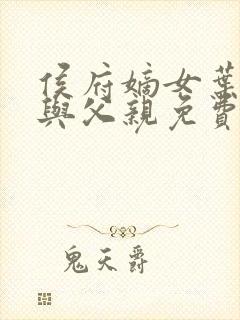 侯府嫡女葉
與父親免費
鬼天爵